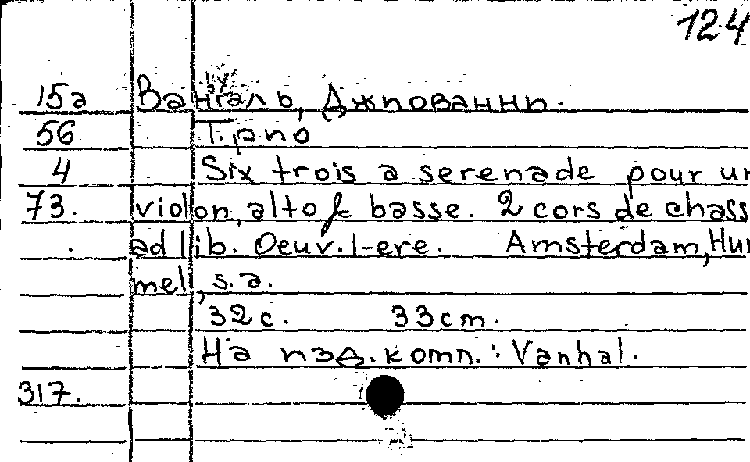 124
15а Вангаль, Джпованнп.
56 Трпо
4 Six trois a serenade pour un
73. violon, alto & basse. 2 cors de chass
ad lib. Oeuv. 1-ere. Amsterdam, Hum
mell, s.a.
32 с. 33 cm.
На пзд. комп.: Vanhal.
317.